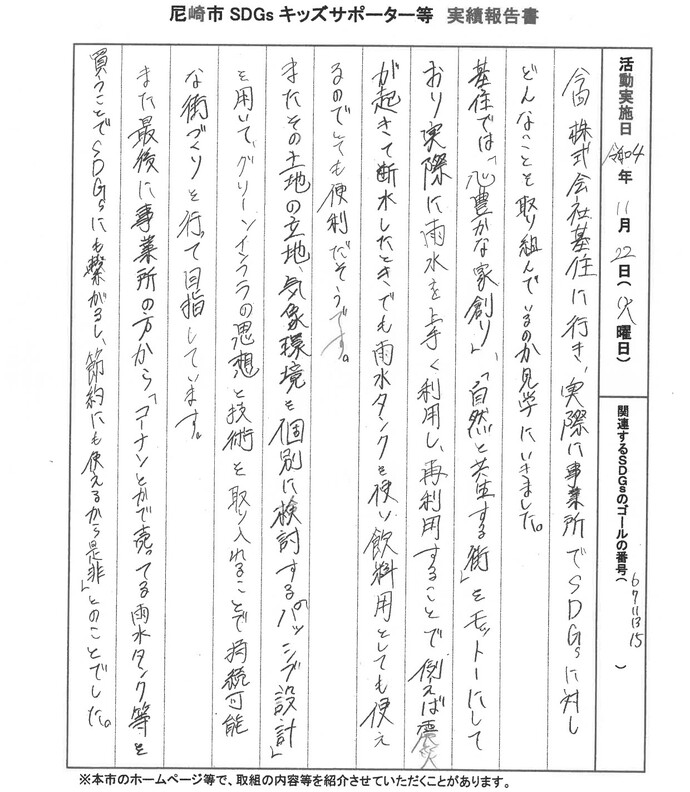 尼崎市 SDGs キッズサポーター等 実績報告書
活動実施日 令和4年 11月 22日(火曜日)
関連するSDGsのゴールの番号( 6 7 11 13 15 )
今回株式会社基住に行き、実際に事業所でSDGsに対し
どんなことを取り組んでいるのか見学にいきました。
基住では「心豊かな家創り」、「自然と共生する街」をモットーにして
おり実際に雨水を上手く利用し、再利用することで例えば震災
が起きて断水したときでも雨水タンクを使い飲料用としても使え
るのでとても便利だそうです。
またその土地の立地、気象環境を個別に検討する「パッシブ設計」
を用いて、グリーンインフラの思想と技術を取り入れることで持続可能
な街づくりを行って目指しています。
また最後に事業所の方から「コーナンとかで売ってる雨水タンク等を
買うことでSDGsにも繋がるし、節約にも使えるから是非」とのことでした。
※本市のホームページ等で、取組の内容等を紹介させていただくことがあります。